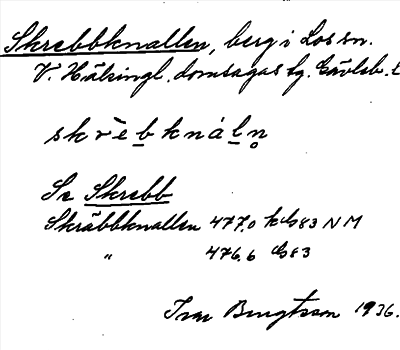 Skrebbknallen, berg i Los sn.
V. Hälsingl. domsagas tg. Gävleb. l
skrèbknáln̥
Se Skrebb
Skräbbknallen 477.0 NM
" 476.6
Ivar Bengtsson 1936.